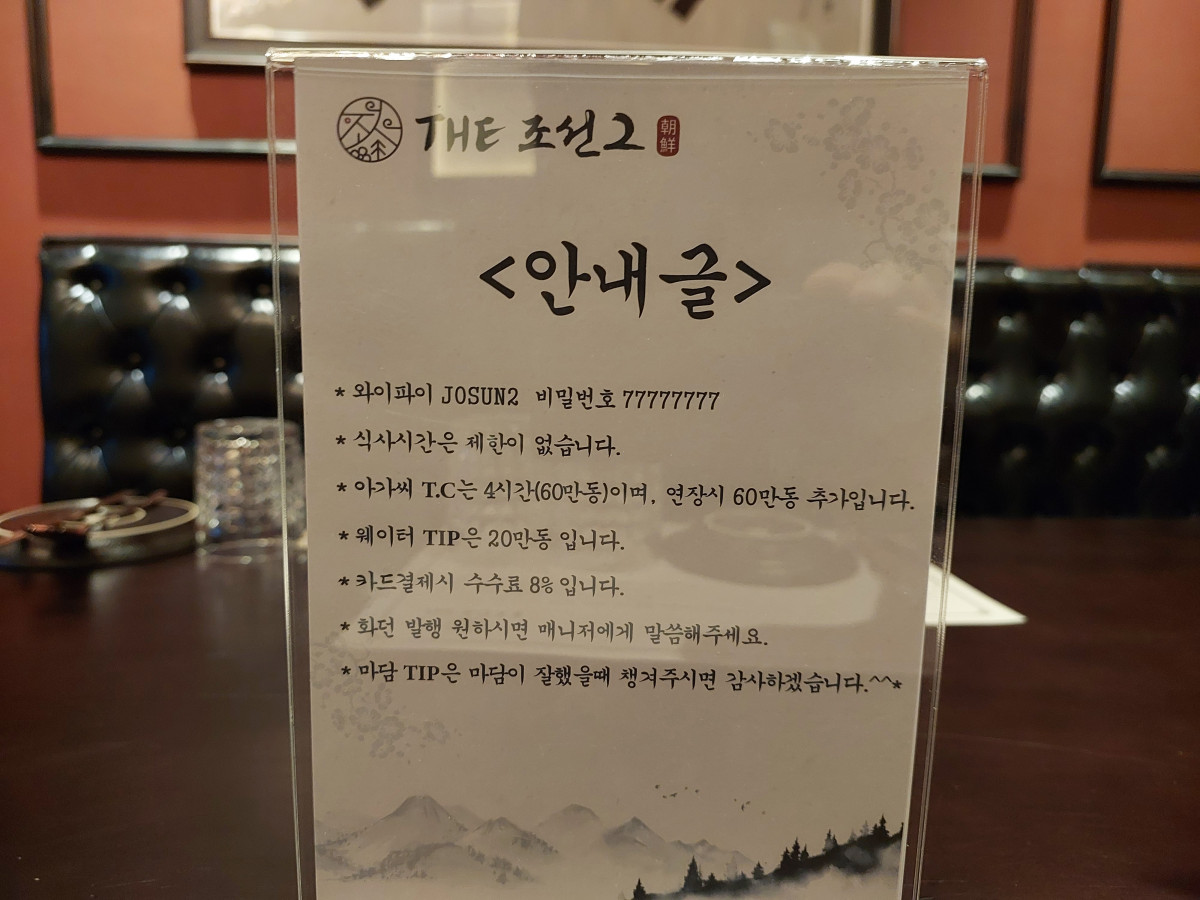 THE 조선2 朝鮮
<안내글>
* 와이파이 JOSUN2 비밀번호 77777777
* 식사시간은 제한이 없습니다.
* 아가씨 T.C는 4시간(60만동)이며, 연장시 60만동 추가입니다.
* 웨이터 TIP은 20만동 입니다.
* 카드결제시 수수료 8% 입니다.
* 화던 발행 원하시면 매니저에게 말씀해주세요.
* 마담 TIP은 마담이 잘했을때 챙겨주시면 감사하겠습니다.^^*